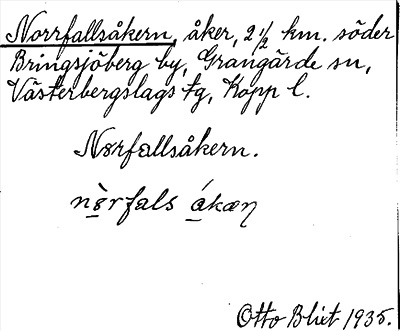 Norrfallsåkern, åker, 2 1/2 km. söder
Bringsjöberg by, Grangärde sn,
Västerbergslags tg, Kopp l.
Norfallsåkern.
nòrfals ákæη
Otto Blixt 1935.